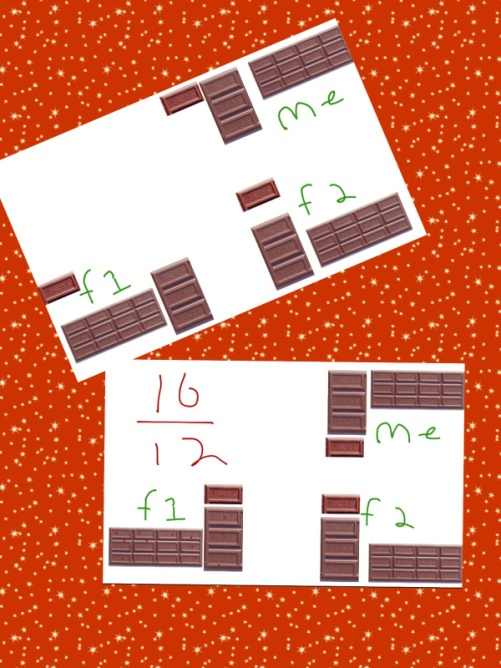 me
f 2
f 1
16
12
me
f 1
f 2